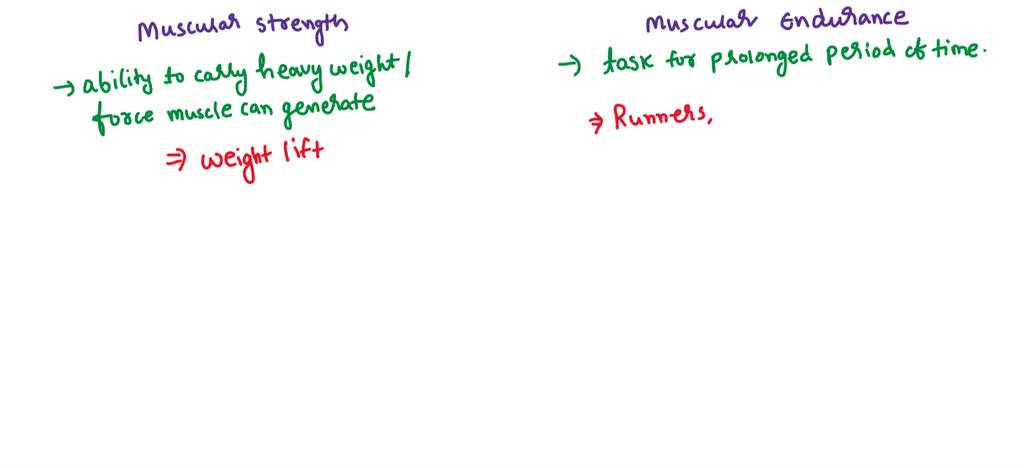 Muscular strength
→ ability to carry heavy weight /
force muscle can generate
⇒ weight lift
Muscular Endurance
→ task for prolonged period of time.
⇒ Runners,